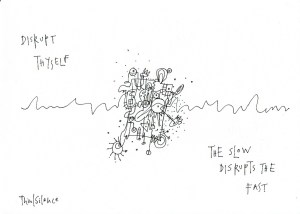 DISRUPT
THYSELF
THE SLOW
DISRUPTS THE
FAST
Think/Silence